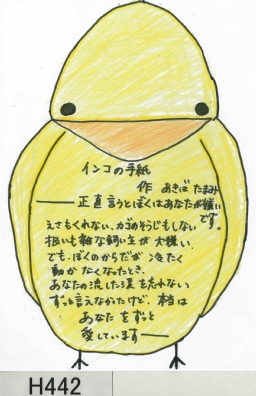 インコの手紙
作 あきば たまみ
――正直言うとぼくはあなたが嫌い
です。
えさもくれない、カゴのそうじもしない
扱いも雑な飼い主が大嫌い
でも、ぼくのからだが冷たく
動かなくなったとき、
あなたの流した涙を忘れない
ずっと言えなかったけど、本当は
あなたをずっと
愛しています――
H442